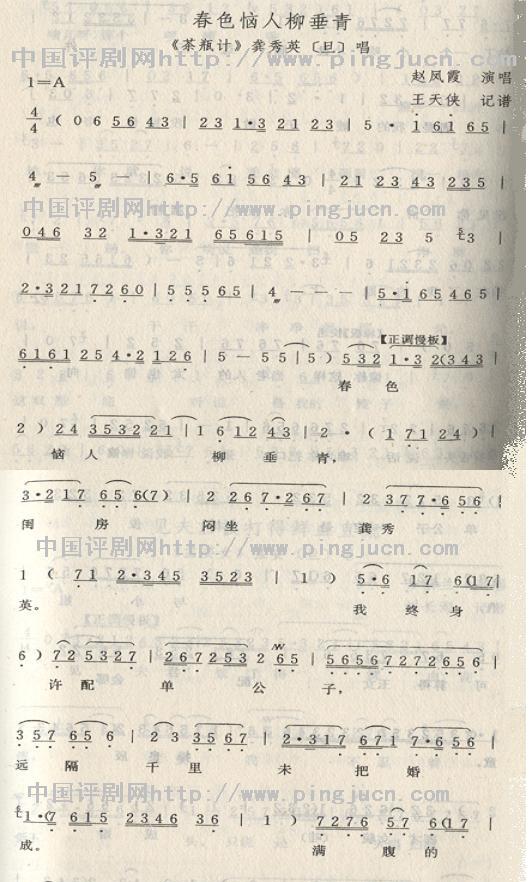 春色恼人柳垂青
《茶瓶计》龚秀英〔旦〕唱
1=A
赵凤霞 演唱
王天侠 记谱
4/4 ( 0 6 5 6 4 3 | 2 3 1·3 2 1 2 3 | 5 · 1 6 1 6 5 |
中国评剧网 www.pingjucn.com
4 — 5 — | 6·5 6 1 5 6 4 3 | 2 1 2 3 4 3 2 3 5 |
中国评剧网 www.pingjucn.com
0 4 6 3 2 1·3 2 1 6 5 6 1 5 | 0 5 2 3 5 3 |
2·3 2 1 7 2 6 0 | 5 5 5 6 5 | 4 — — — | 5·1 6 5 4 6 5 |
【正调慢板】
6 1 6 1 2 5 4·2 1 2 6 | 5 — 5 5 | 5 ) 5 3 2 1·3 2 (3 4 3
春色
2 ) 2 4 3 5 3 2 2 1 | 1 6 1 2 4 3 | 2 · ( 1 7 1 2 4 ) |
恼人 柳垂青,
3·2 1 7 6 5 6 (7) | 2 2 6 7·2 6 7 | 2 3 7 7·6 5 6 |
闺房 闷坐 龚秀
中国评剧网 www.pingjucn.com
1 ( 7 1 2·3 4 5 3 5 2 3 | 1 ) 5·6 1 7 6 (1 7 |
英。 我终身
6 ) 7 2 5 3 2 7 | 2 6 7 2 5 3 2 6 5 | 5 6 5 6 7 2 7 2 6 5 6 |
许配 单公子,
3 5 7 6 5 | 2 3 3 5 6 7 | 2·3 1 7 6 7 1 7·6 5 6 |
远隔 千里 未把婚
中国评剧网 www.pingjucn.com
1·(7 6 1 5 2 3 4 6 3 6 | 1 ) 7 2 7 6 5 6 (1 7 |
成。 满腹的